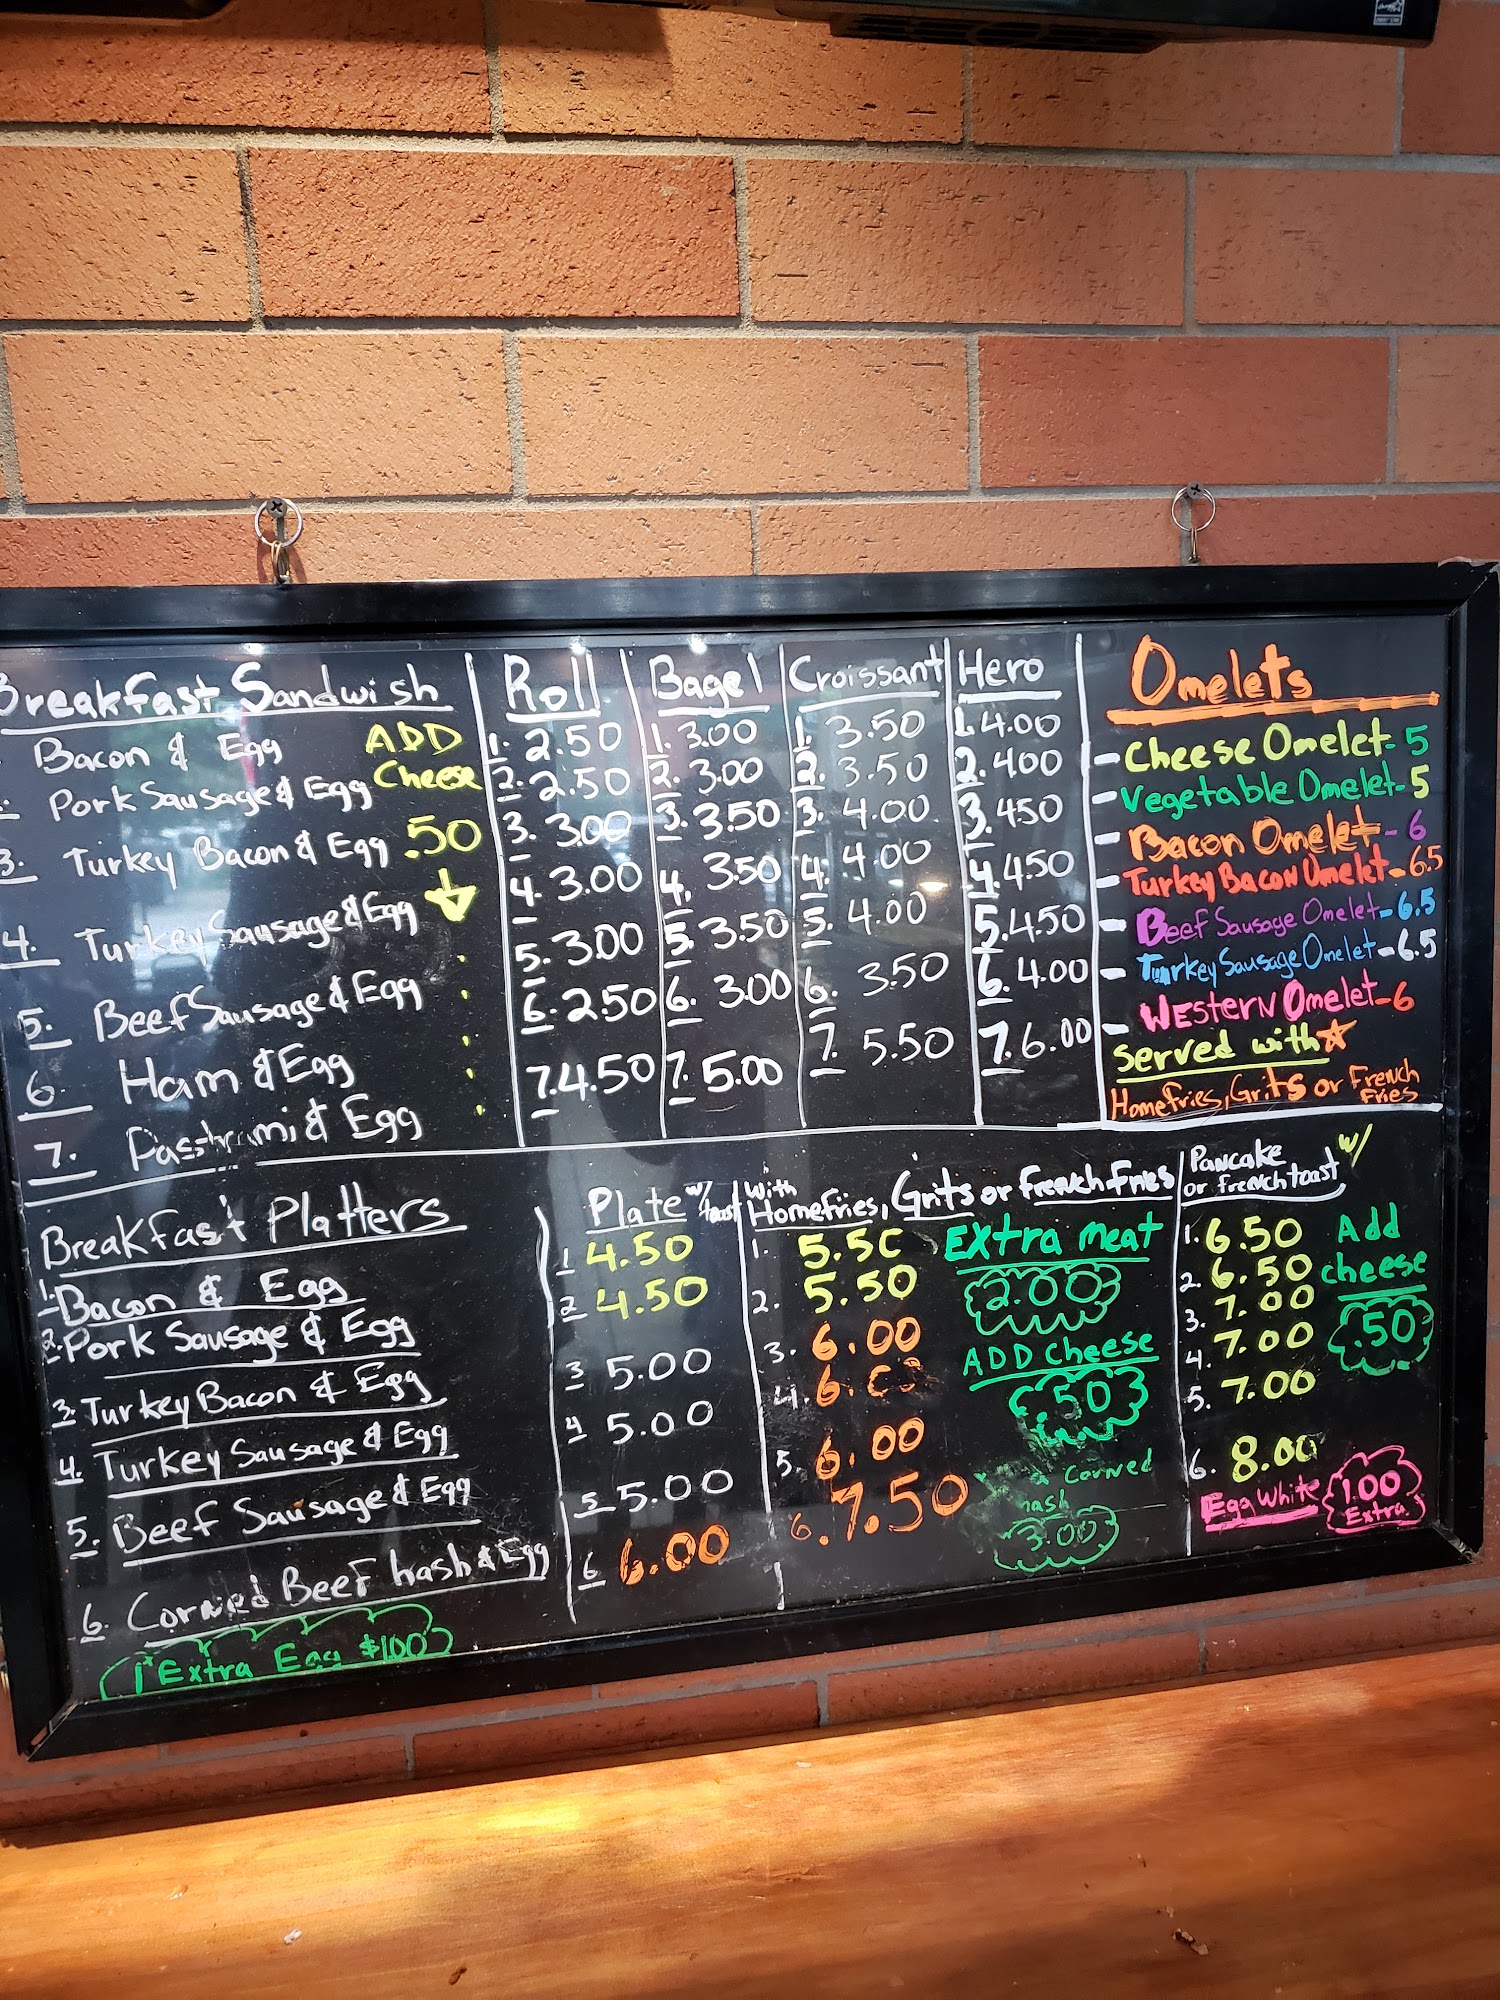 Breakfast Sandwish
Bacon & Egg
Pork Sausage & Egg
3. Turkey Bacon & Egg
4. Turkey Sausage & Egg
5. Beef Sausage & Egg
6. Ham & Egg
7. Pastrami & Egg
ADD
Cheese
.50
Roll
1. 2.50
2. 2.50
3. 3.00
4. 3.00
5. 3.00
6. 2.50
7. 4.50
Bagel
1. 3.00
2. 3.00
3. 3.50
4. 3.50
5. 3.50
6. 3.00
7. 5.00
Croissant
1. 3.50
2. 3.50
3. 4.00
4. 4.00
5. 4.00
6. 3.50
7. 5.50
Hero
1. 4.00
2. 4.00
3. 4.50
4. 4.50
5. 4.50
6. 4.00
7. 6.00
Omelets
- Cheese Omelet - 5
- Vegetable Omelet - 5
- Bacon Omelet - 6
- Turkey Bacon Omelet - 6.5
- Beef Sausage Omelet - 6.5
- Turkey Sausage Omelet - 6.5
- Western Omelet - 6
Served with
Homefries, Grits or French
Fries
Breakfast Platters
1. Bacon & Egg
2. Pork Sausage & Egg
3. Turkey Bacon & Egg
4. Turkey Sausage & Egg
5. Beef Sausage & Egg
6. Corned Beef hash & Egg
Extra Egg $1.00
Plate w/ toast
1 4.50
2 4.50
3 5.00
4 5.00
5 5.00
6 6.00
with
Homefries, Grits or French Fries
1. 5.50
2. 5.50
3. 6.00
4. 6.
5. 6.00
6. 7.50
Extra meat
2.00
ADD Cheese
.50
Corned
hash
3.00
Pancake w/
or french toast
1. 6.50
2. 6.50
3. 7.00
4. 7.00
5. 7.00
6. 8.00
Add
cheese
.50
Egg White 1.00
Extra